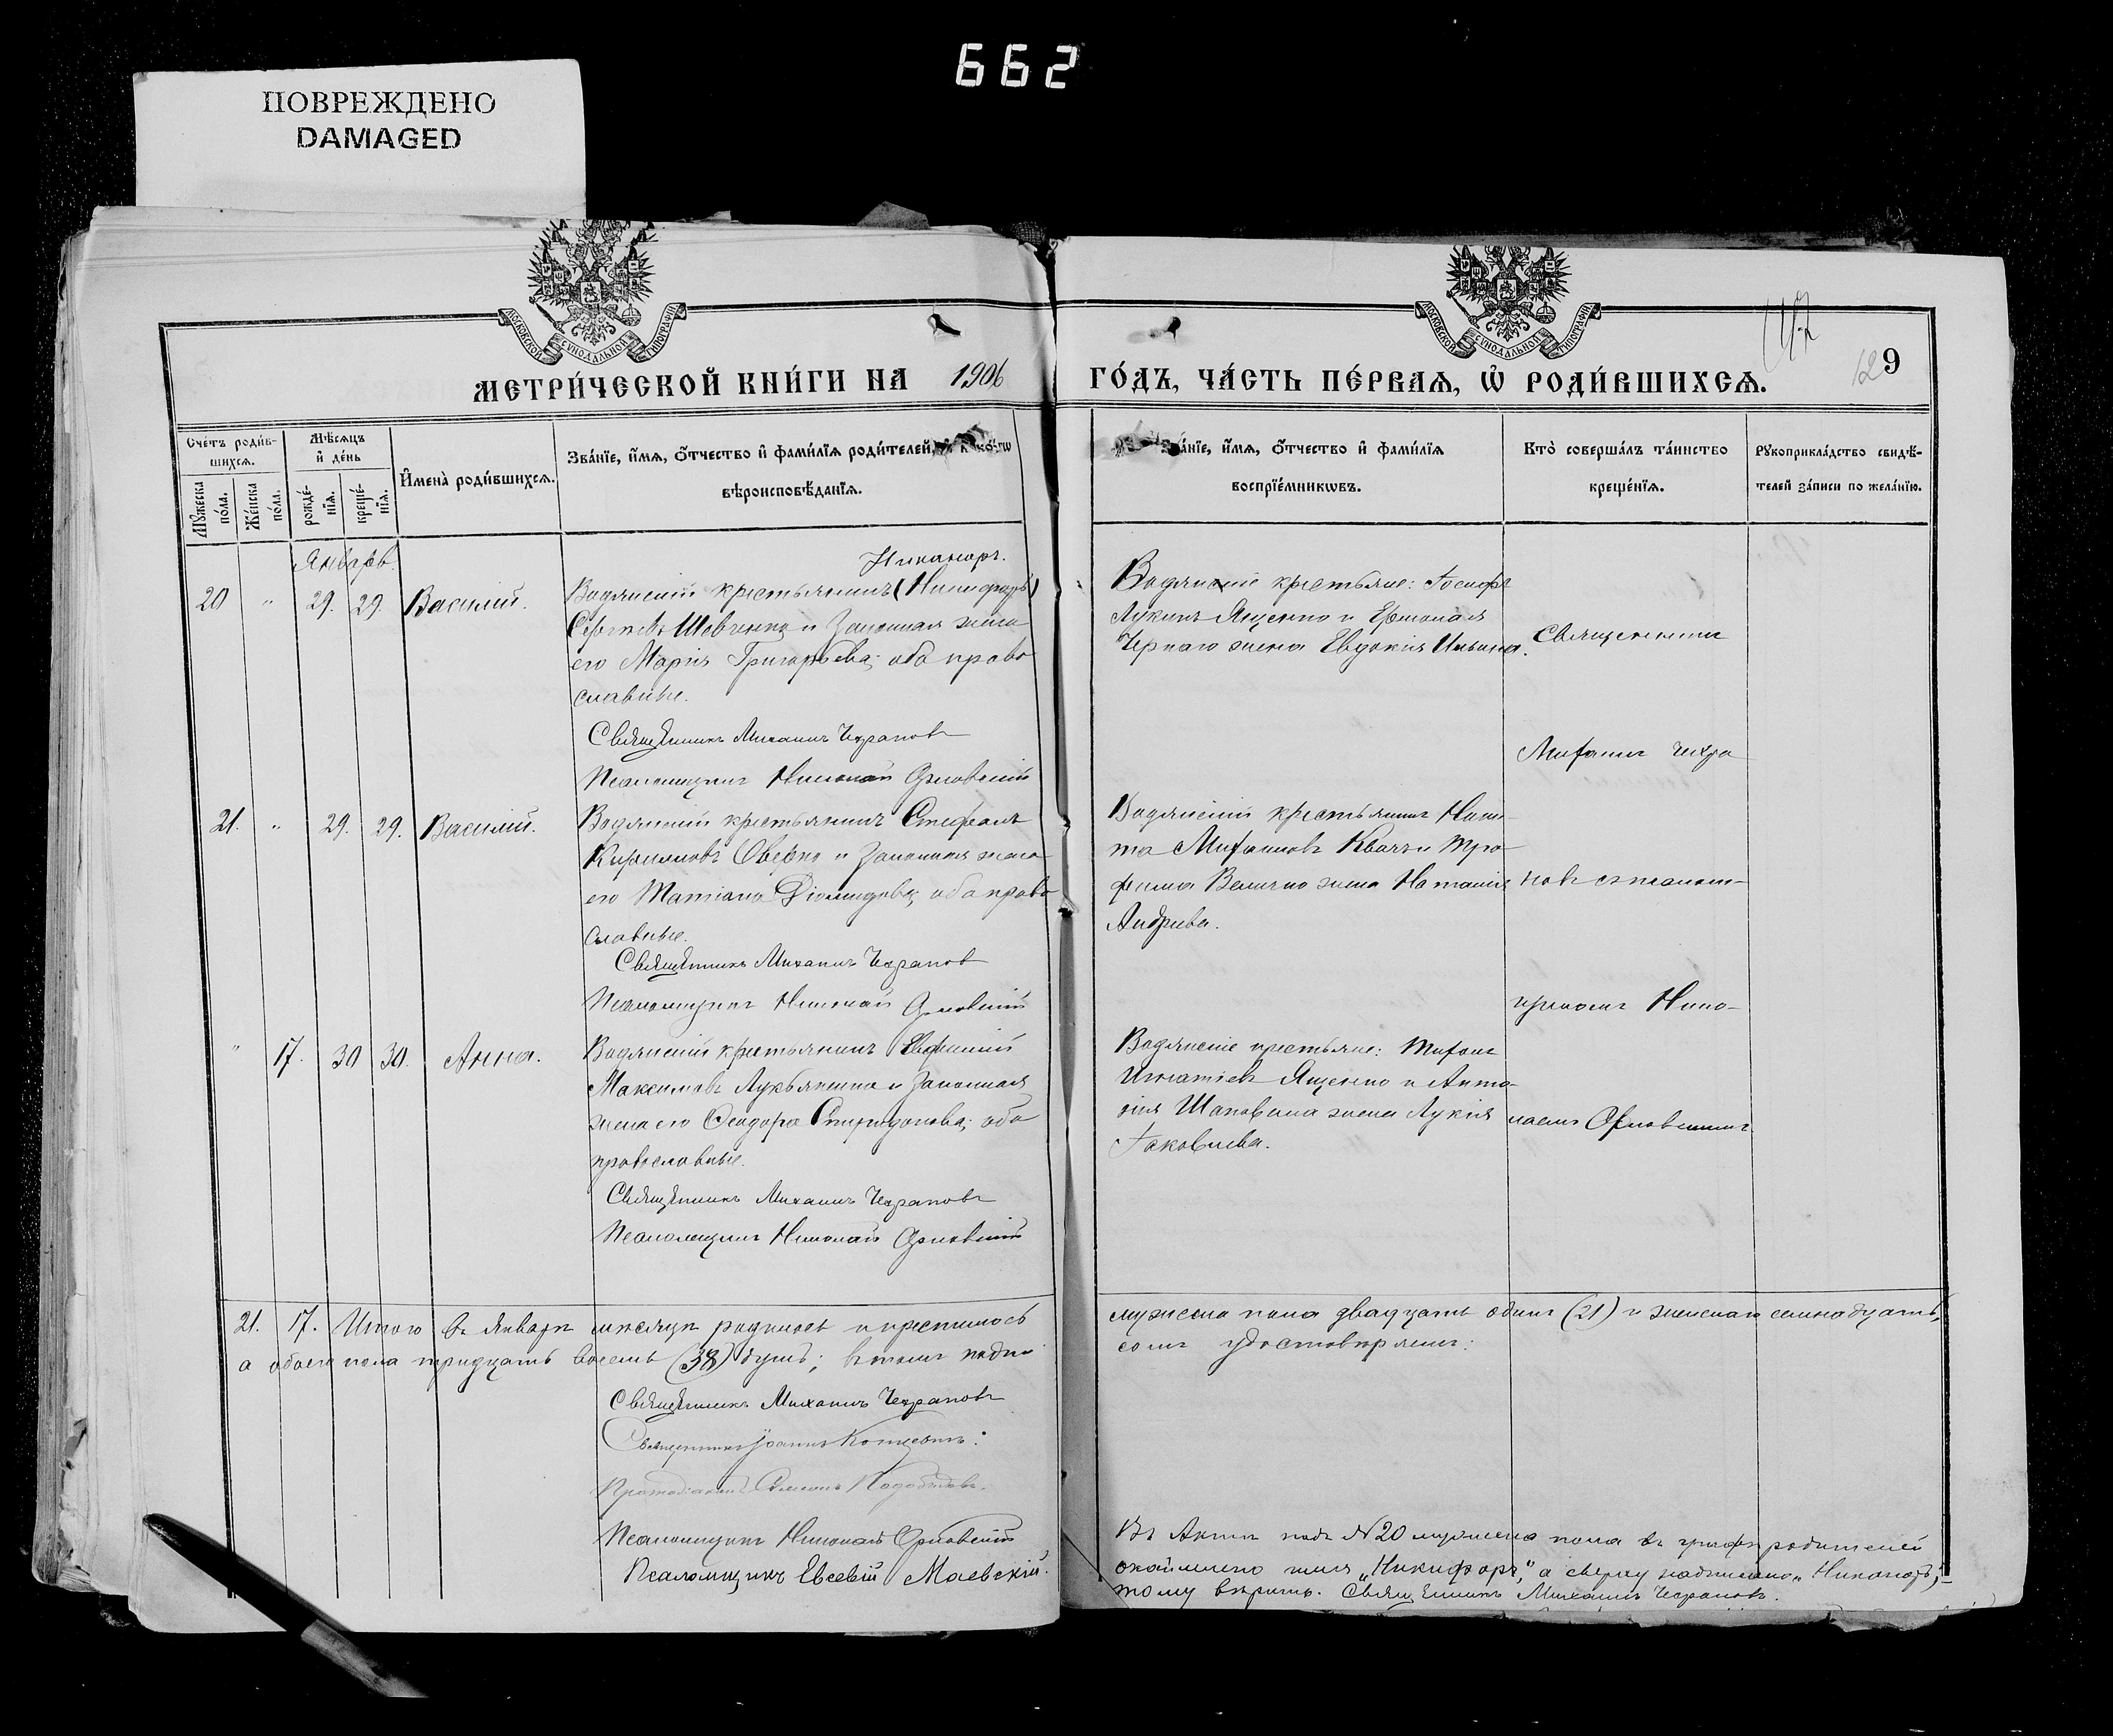 662
ПОВРЕЖДЕНО
DAMAGED
МОСКОВСКОЙ СѴНОДАЛЬНОЙ ТИПОГРАФІИ
МОСКОВСКОЙ СѴНОДАЛЬНОЙ ТИПОГРАФІИ
МЕТРИ́ЧЕСКОЙ КНИ́ГИ НА 1906
ГО́ДЪ, ЧА́СТЬ ПЕ́РВАѦ, Ѡ РОДИ́ВШИХСѦ.
129
Сче́тъ роди́в-
шихсѧ.
Мꙋ́жеска
по́ла.
Же́нска
по́ла.
Мѣ́сѧцъ
и҆ де́нь
рожде́-
нїѧ.
креще́-
нїѧ.
И҆мена̀ роди́вшихсѧ.
Зва́нїе, и҆́мѧ, ѻ҆́тчество и҆ фами́лїѧ роди́телей, и҆ како́гѡ
вѣроисповѣ́данїѧ.
Зва́нїе, и҆́мѧ, ѻ҆́тчество и҆ фами́лїѧ
воспрїе́мникѡвъ.
Кто̀ соверша́лъ та́инство
креще́нїѧ.
Рꙋкоприкла́дство свидѣ́-
телей за́писи по жела́нїю.
Январь.
Никаноръ.
20 " 29. 29. Василій.
Водянскій крестьянинъ (Никифоръ)
Сергѣевъ Шевченко и законная жена
его Марія Григорьева; оба право
славные.
Священникъ Михаилъ Чехрановъ
Псаломщикъ Николай Орловскій
Водянскіе крестьяне: Іосифъ
Лукинъ Яценко и
Чернаго жена Евдокія Ильина.
21. " 29. 29. Василій.
Водянскій крестьянинъ Стефанъ
Кирилловъ Оверко и законная жена
его Татіана Діомидова; оба право
славные.
Священникъ Михаилъ Чехрановъ
Псаломщикъ Николай Орловскій
Водянскій крестьянинъ Ники-
та Митрофановъ Квачъ и Тро-
фима Величко жена Наталія
Андреева.
" 17. 30 30. Анна.
Водянскій крестьянинъ Евфимій
Максимовъ Лукьяненко и законная
жена его Ѳеодора Спиридонова; оба
православные.
Священникъ Михаилъ Чехрановъ
Псаломщикъ Николай Орловскій
Водянскіе крестьяне: Трифонъ
Игнатіевъ Яценко и Анто-
нія Шаповала жена Лукія
Іаковлева.
Священникъ
Михаилъ Чехра
новъ съ псаломъ-
щикомъ Нико-
лаемъ Орловскимъ
21. 17. Итого въ Январѣ мѣсяцѣ родилось и крестилось
мужеска пола двадцать одинъ (21) и женскаго семнадцать,
а обоего пола тридцать восемь (38) душъ; въ томъ подпи
сомъ удостовѣряемъ:
Священникъ Михаилъ Чехрановъ
Священникъ Іоаннъ
Протодіаконъ Симеонъ
Псаломщикъ Николай Орловскій
Псаломщикъ Евсевій Маевскій.
Въ Актѣ подъ №20 мужеска пола въ графѣ родителей
окаймлено имя „Никифоръ", а сверху надписано „Никаноръ",-
тому вѣрить. Священникъ Михаилъ Чехрановъ.